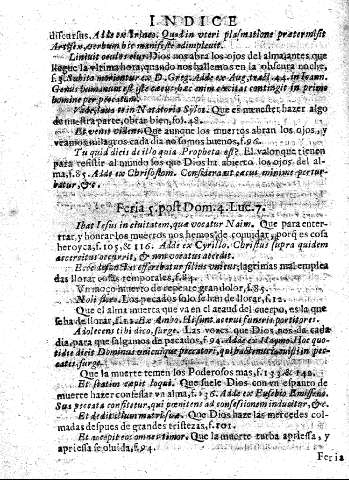 INDICE
discursus. Adde ex Irineo. Quod in vteri plasmatione prætermisit
Artifex, verbum hic manifestè adimpleuit.
Liniuit oculos eius. Dios nos abra los ojos del alma, antes que
llegue la vltima hora, quando nos hallemos en la obscura noche,
Subitò morientur ex D. Greg. Adde ex Aug. tract. 44. in Ioann.
Genus humanum est iste cæcus: hæc enim cæcitas contingit in primo
homine per peccatum.
Vade, laua in Natatoria Syloe. Que es menester hazer algo
de nuestra parte, obrar bien, fol. 48.
Et venit videns. Que aunque los muertos abran los ojos, y
veamos milagros cada dia no somos buenos, f. 96.
Tu quid dicis de illo quia Propheta est? El valor que tienen
para resistir al mundo los que Dios ha abierto los ojos del al-
ma, f. 85. Adde ex Chrisostom. Considerant cæcus minimè pertur-
batur, &c.
Feria 5. post Dom. 4. Luc. 7.
Ibat Iesus in ciuitatem, quæ vocatur Naim. Que para enter-
rar, y honrar los muertos nos hemos de conuidar, porq̃ es cosa
heroyca, f. 105. & 116. Adde ex Cyrillo. Christus supra quidem
accersitus occurrit, & non vocatus accedit.
Ecce defunctus efferebatur filius vnicus, lagrimas mal emplea
das llorar cosas temporales, f. 84.
Vn moço muerto de repente gran dolor, f. 85.
Noli flere. Los pecados solo se han de llorar, f. 12.
Que el alma muerta que va en el ataud del cuerpo, es la que
se ha de llorar, f. 12. Ex Ambo. Hi sunt acerui funeris portitores.
Adolescens tibi dico, surge. Las vozes que Dios nos da cada
dia, para que salgamos de pecados, f. 94. Adde ex Haymo. Hoc quo-
tidie dicit Dominus vnicuique peccatori,
catis, surge.
Que la muerte temen los Poderosos mas, f. 133. & 140.
Et statim cœpit loqui. Que suele Dios con vn espanto de
muerte hazer confessar vn alma, f. 136. Adde ex Eusebio Emisseno.
Sua peccata confitetur, qui pœnitens ad confessionem inducitur, &c.
Et dedit illum matri suæ. Que Dios haze las mercedes col-
madas despues de grandes tristezas, f. 101.
Et accepit eos omnes timor. Que la muerte turba apriessa, y
apriessa se oluida, f. 94.
Feria